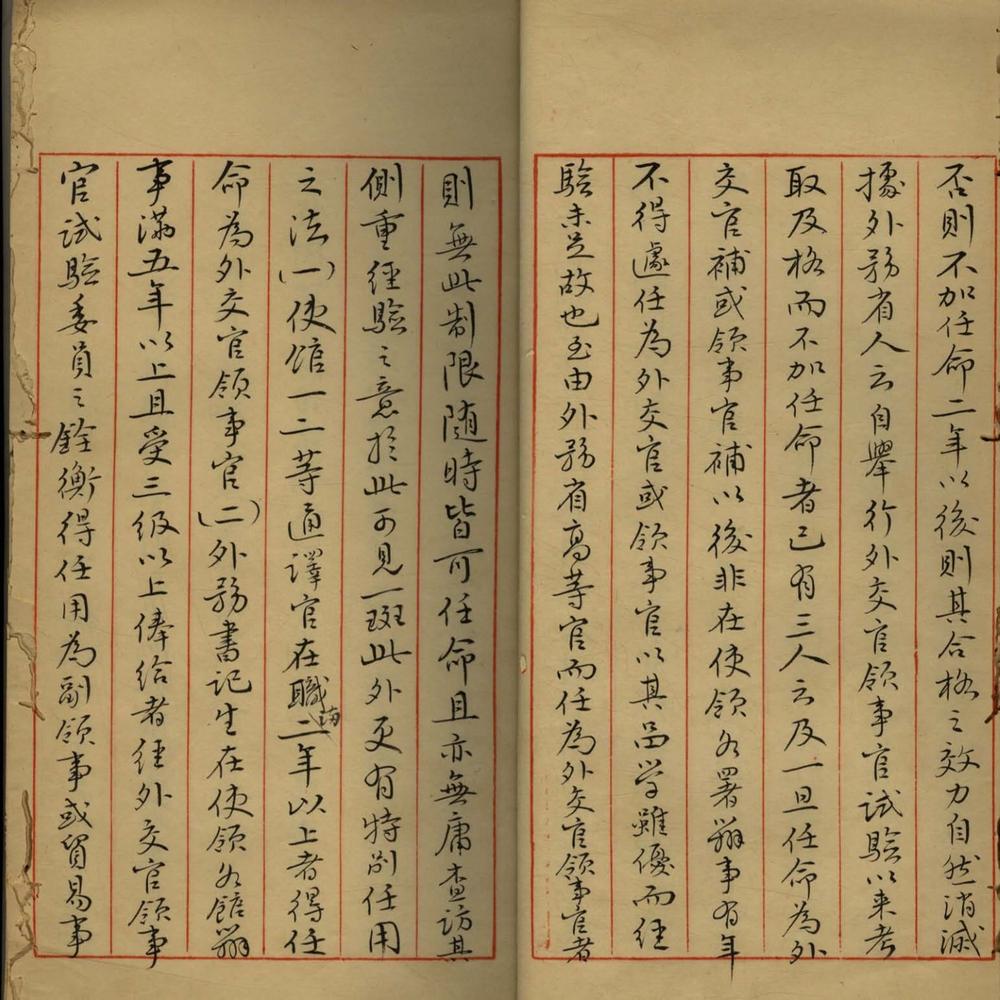 否則不加任命二年以後則其合格之效力自然消滅
據外務省人云自舉行外交官領事官試驗以來考
取及格而不加任命者已有三人云及一旦任命為外
交官補或領事官補以後非在使領各署辦事有年
不得遽任為外交官或領事官以其品学雖優而經
驗未足故也至由外務省高等官而任為外交官領事官者
則無此制限隨時皆可任命且亦無庸查訪其
側重經驗之意於此可見一斑此外更有特別任用
之法(一)使館一二等通譯官在職滿二年以上者得任
命為外交官領事官(二)外務書記生在使領各館辦
事滿五年以上且受三級以上俸給者經外交官領事
官試驗委員之銓衡得任用為副領事或貿易事